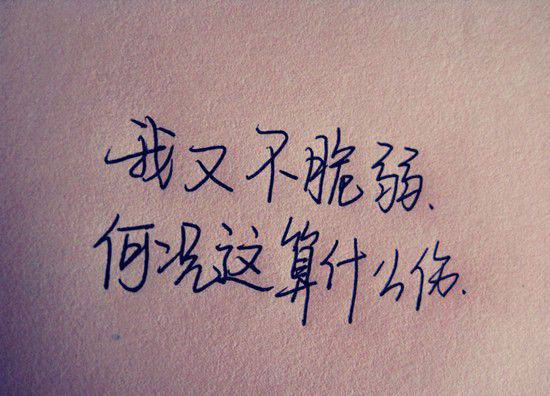 我又不脆弱、
何况这算什么伤、